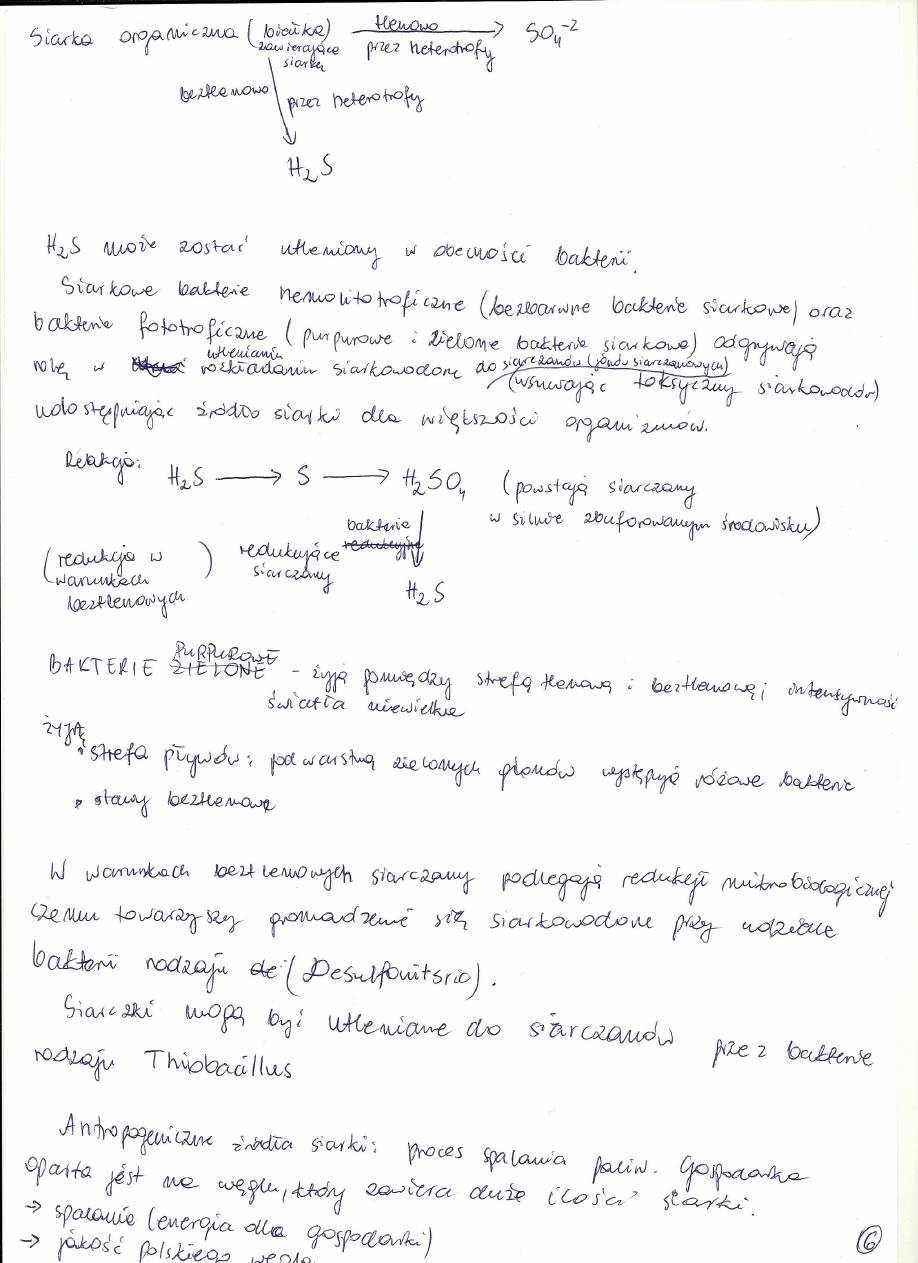 Siarka organiczna (białka) tlenowo SO4-2
zawierające przez heterotrofy
siarkę
beztlenowo przez heterotrofy
H2S
H2S może zostać utleniony w obecności bakterii.
Siarkowe bakterie hemolitotroficzne (bezbarwne bakterie siarkowe) oraz
bakterie fototroficzne (purpurowe i zielone bakterie siarkowe) odgrywają
utlenianiu
rolę w rozkładaniu siarkowodoru do siarczanów (jonów siarczanowych)
(usuwając toksyczny siarkowodór)
udostępniając źródło siarki dla większości organizmów.
Reakcja: H2S → S → H2SO4 (powstają siarczany
w silnie zbuforowanym środowisku)
(redukcja w warunkach beztlenowych) redukujące siarczany bakterie redukcyjne
H2S
BAKTERIE ZIELONE PURPUROWE - żyją pomiędzy strefą tlenową i beztlenową; intensywność
światła niewielka
żyją
• strefa pływów; pod warstwą zielonych glonów występują różowe bakterie
• stawy beztlenowe
W warunkach beztlenowych siarczany podlegają redukcji mikrobiologicznej
czemu towarzyszy gromadzenie się siarkowodoru przy udziale
bakterii rodzaju de (Desulfovitsrio).
Siarczki mogą być utleniane do siarczanów przez bakterie
rodzaju Thiobacillus
Antropogeniczne źródła siarki: proces spalania paliw. Gospodarka
oparta jest na węglu, który zawiera duże ilości siarki.
→ spalanie (energia dla gospodarki)
→ jakość polskiego węgla
6